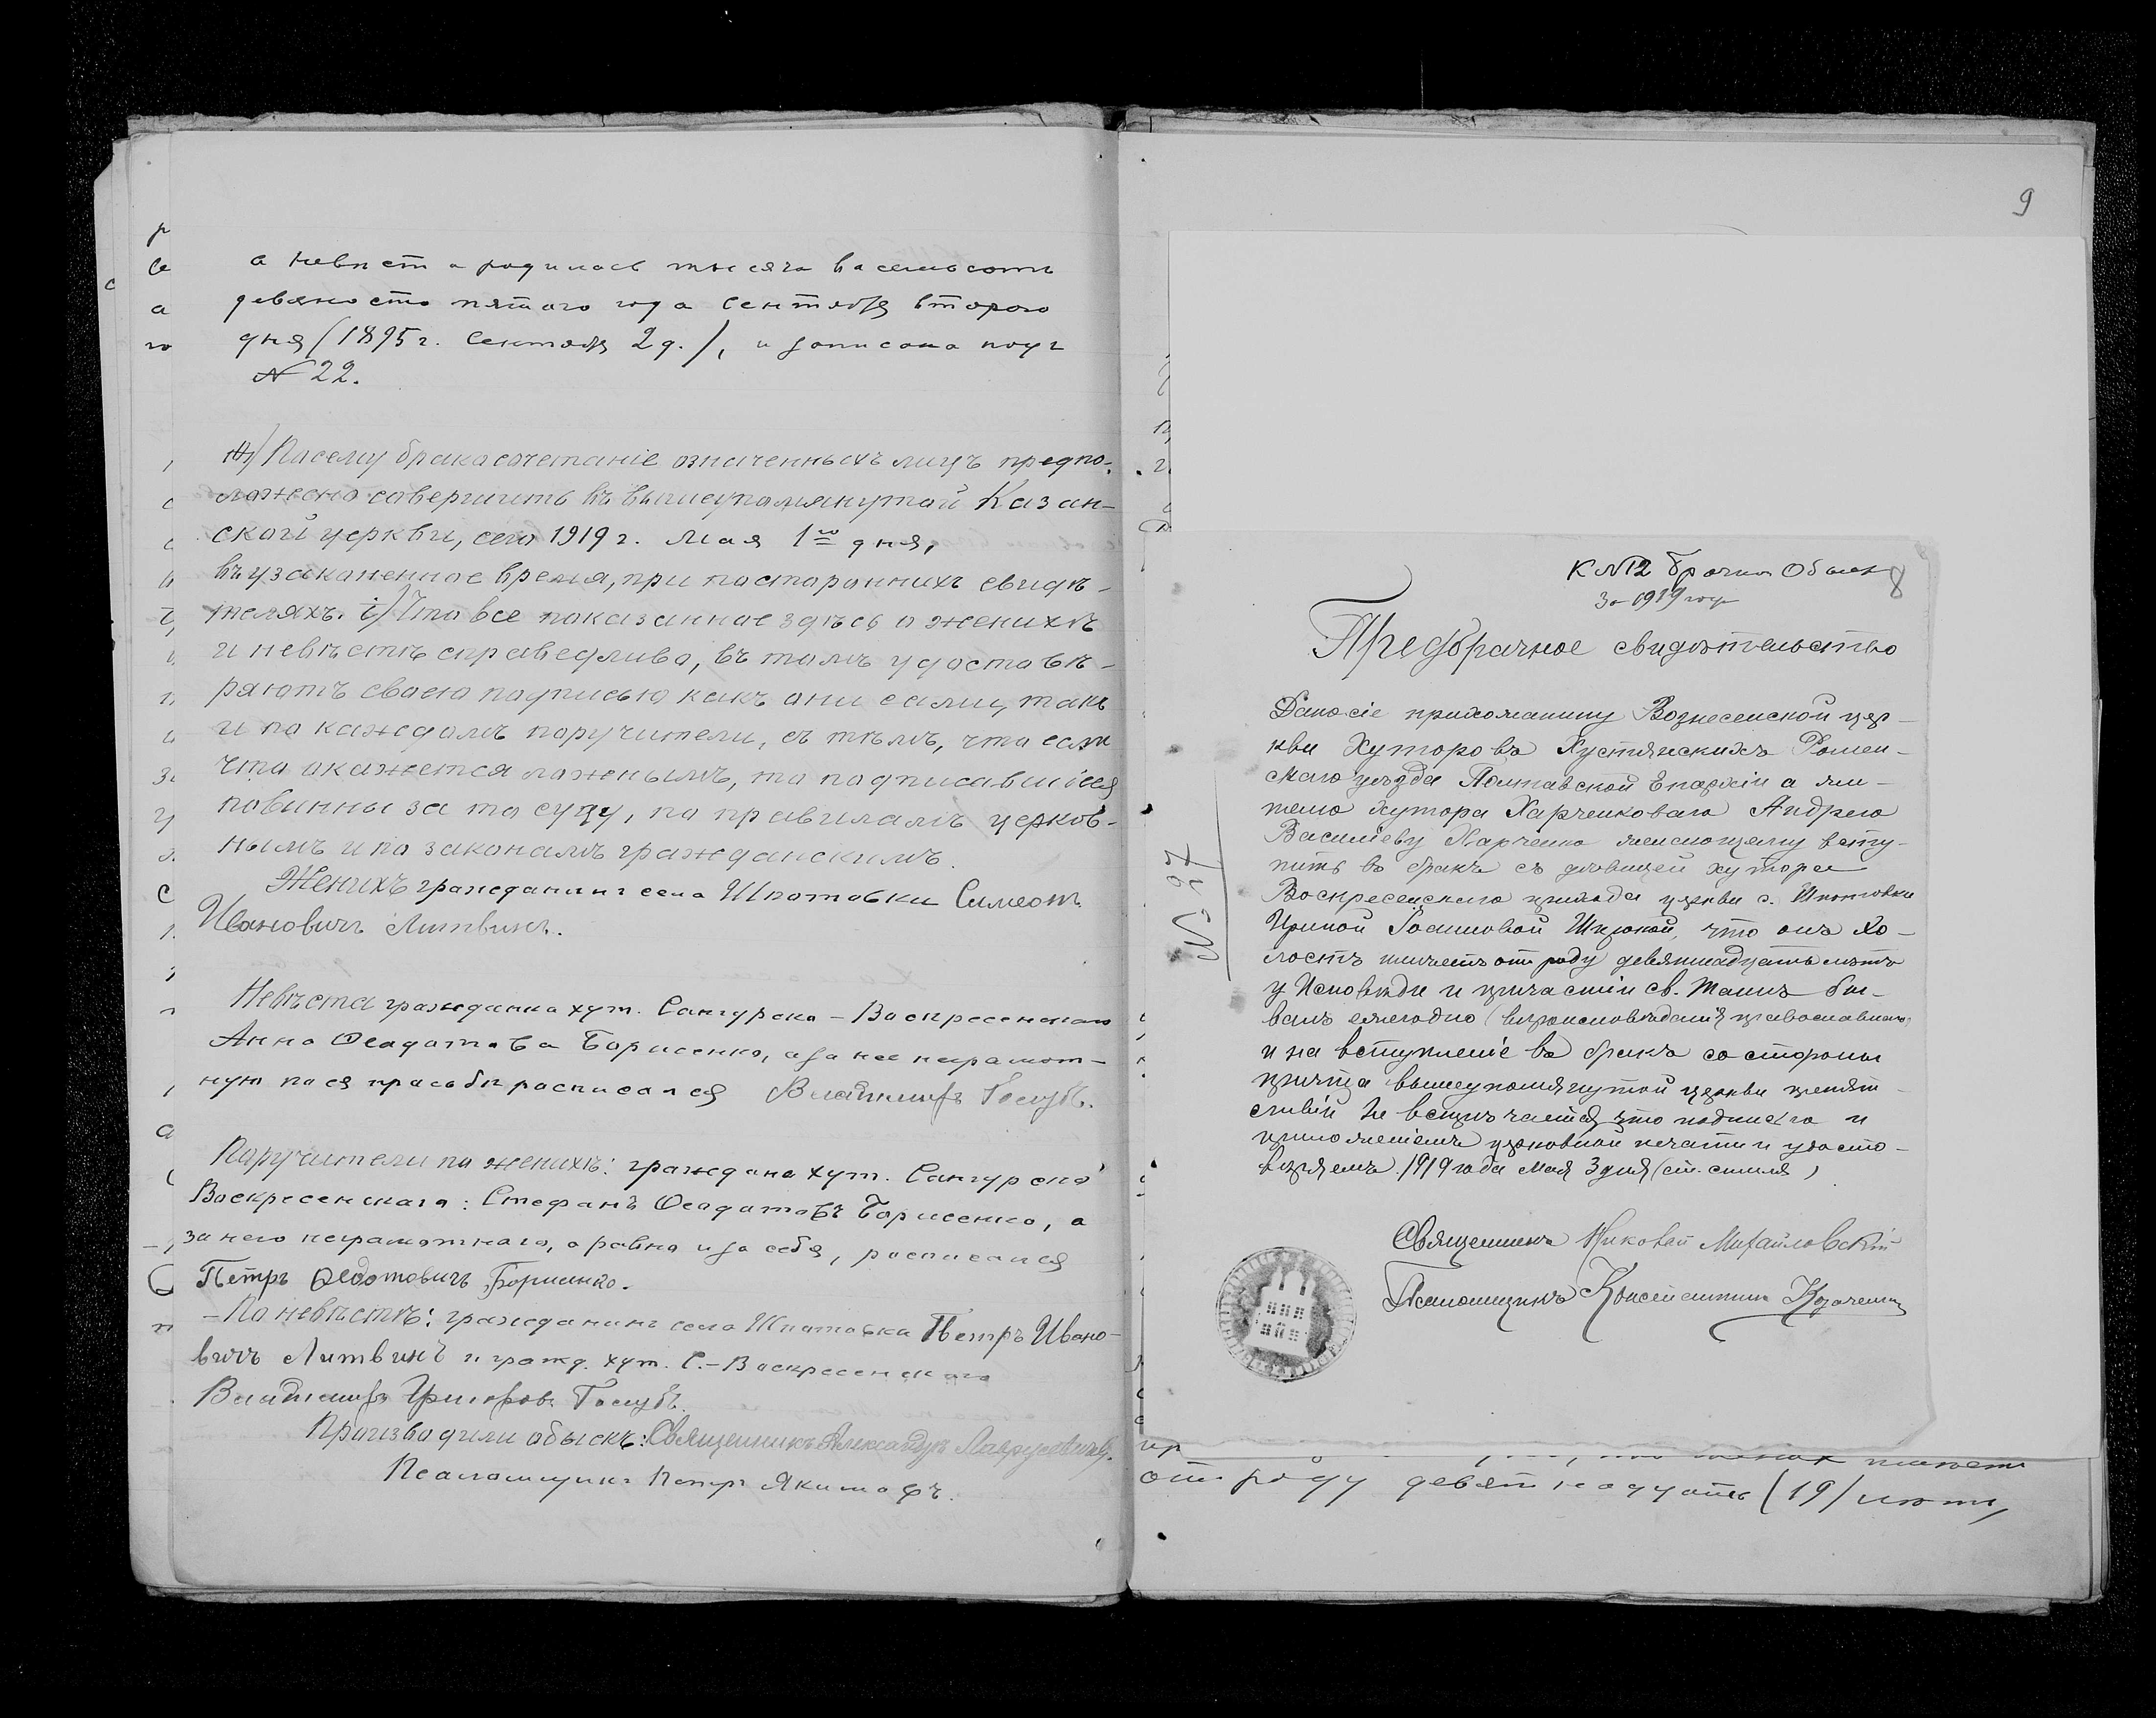 а невѣста родилась тысяча восемьсотъ
девяносто пятаго года Сентября второго
дня (1895 г. Сентября 2 д.), и записана подъ
№ 22.
Посему бракосочетаніе означенныхъ лицъ предпо-
ложено совершить въ вышеупомянутой Казан-
ской церкви, сего 1919 г. Мая 1го дня,
въ узаконенное время, при постороннихъ свидѣ-
теляхъ. i) Что все показанное здѣсь о женихѣ
и невѣстѣ справедливо, въ томъ удостовѣ-
ряютъ своею подписью какъ они сами, такъ
и по каждомъ поручители, съ тѣмъ, что если
что окажется ложнымъ, то подписавшіеся
повинны за то суду, по правиламъ церков-
нымъ и по законамъ гражданскимъ.
Женихъ гражданинъ села Шпотовки Симеонъ
Ивановичъ Литвинъ.
Невѣста гражданка хут. Сангурско-Воскресенскаго
Анна Феодотова Борисенко, а за нее неграмот-
ную по ея просьбѣ росписался Владимиръ Голубъ.
Поручители по женихѣ: граждане хут. Сангурско
Воскресенскаго: Стефанъ Феодотовъ Борисенко, а
за него неграмотнаго, а равно и за себя, росписался
Петръ Федотовичъ Борисенко.
- По невѣстѣ: гражданинъ села Шпотовки Петръ Ивано-
вичъ Литвинъ и гражд. хут. С.-Воскресенскаго
Владимиръ Григоровъ Голубъ.
Производили обыскъ: Священникъ Александръ
Псаломщикъ Петръ Якимовъ.
9
К №12 Брачн. Обыск
8
За 1919 годъ
Предбрачное свидѣтельство
Дано сіе прихожанину Вознесенской цер-
кви Хуторовъ Хустянскихъ Ромен-
скаго уѣзда Полтавской Епархіи а жи-
телю хутора Харченковаго Андрею
Василіеву Харченко желающему всту-
пить въ бракъ съ дѣвицей хутора
Воскресенскаго прихода церкви с. Шпотовки
Ириной что онъ хо-
лостъ имѣетъ отъ роду девятнадцать лѣтъ
у Исповѣди и причастіи св. Таинъ бы-
валъ ежегодно (вѣроисповѣданія православнаго)
и на вступленіе въ бракъ со стороны
причта вышеупомянутой церкви препят-
ствій не встрѣчается что подписью и
приложеніемъ церковной печати и удосто-
вѣряемъ. 1919 года Мая 3 дня (ст. стиля)
Священникъ Николай Михайловскій
Псаломщикъ Константинъ
№ 97
отъ роду девятнадцать (19) лѣтъ,